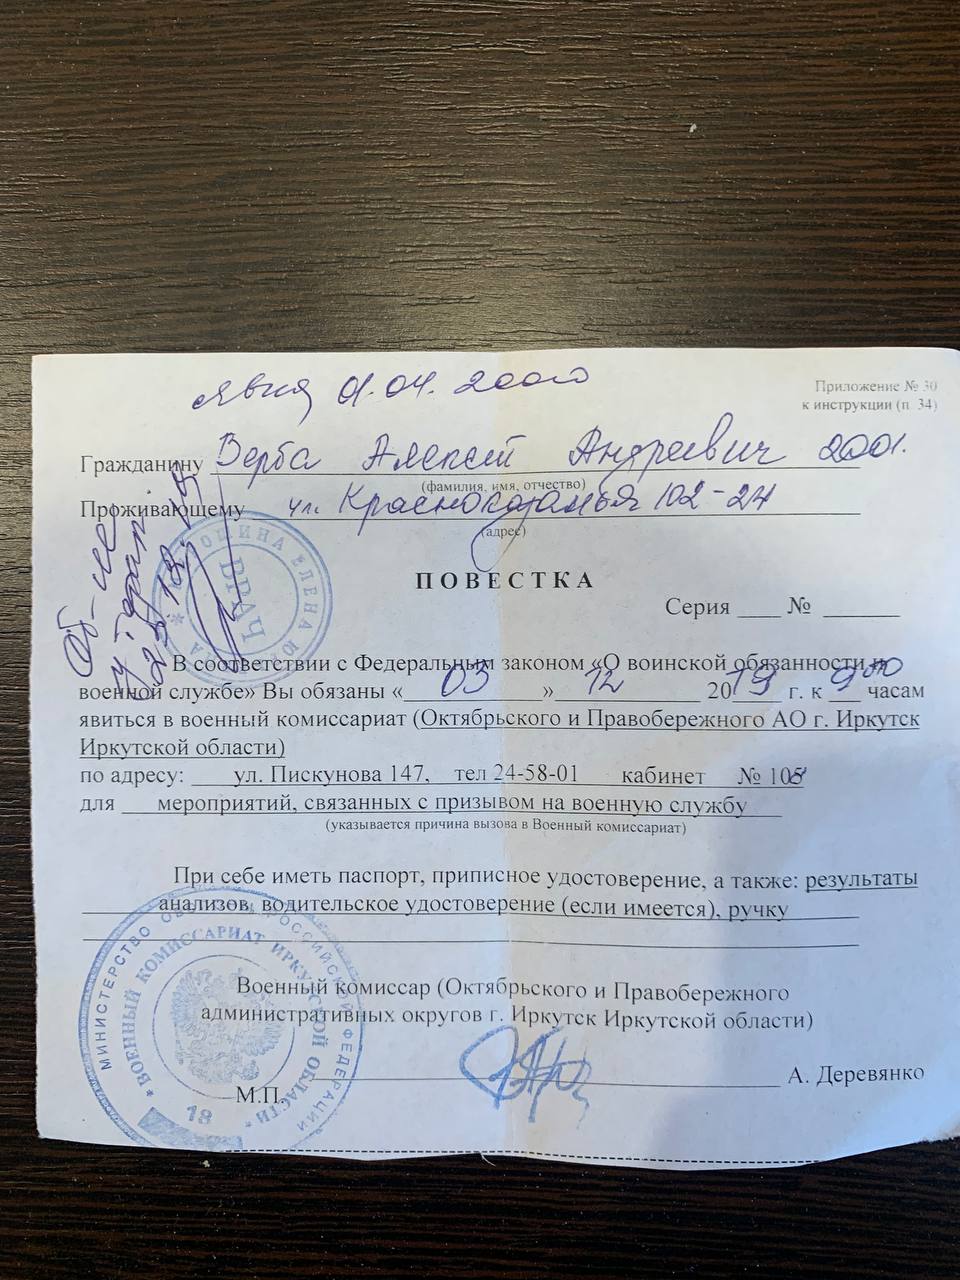 явка 01.04.2020
Приложение № 30
к инструкции (п. 34)
Гражданину Верба Алексей Андреевич 2001.
(фамилия, имя, отчество)
Проживающему ул. Красноказачья 102-24
(адрес)
ВРАЧ
ЕЛЕНА
ПОВЕСТКА
Серия ____ № _______
В соответствии с Федеральным законом «О воинской обязанности и
военной службе» Вы обязаны « 03 » 12 2019 г. к 9 00 часам
явиться в военный комиссариат (Октябрьского и Правобережного АО г. Иркутск
Иркутской области)
по адресу: ул. Пискунова 147, тел 24-58-01 кабинет № 108
для мероприятий, связанных с призывом на военную службу
(указывается причина вызова в Военный комиссариат)
При себе иметь паспорт, приписное удостоверение, а также: результаты
анализов, водительское удостоверение (если имеется), ручку
Военный комиссар (Октябрьского и Правобережного
административных округов г. Иркутск Иркутской области)
А. Деревянко
М.П.
МИНИСТЕРСТВО РОССИЙСКОЙ ФЕДЕРАЦИИ
* ВОЕННЫЙ КОМИССАРИАТ ИРКУТСКОЙ ОБЛАСТИ *
18